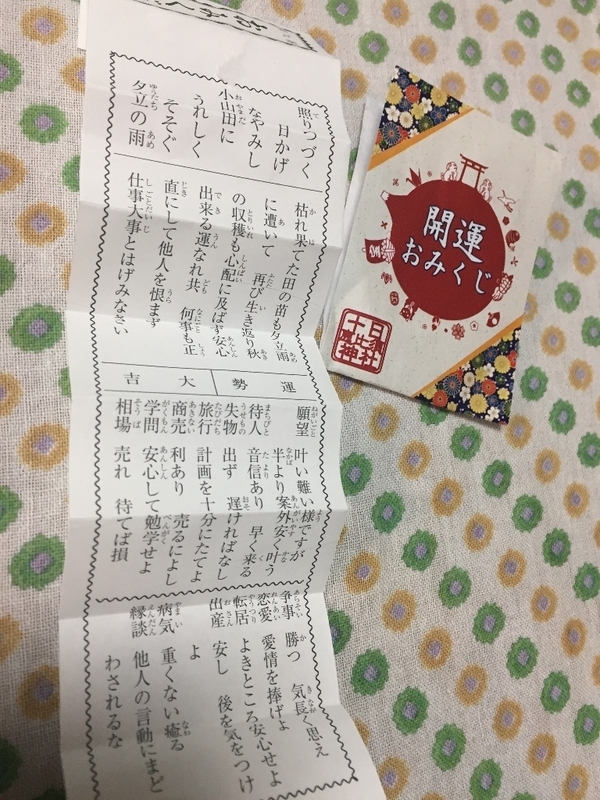 照りつづく
日かげ
なやみし
小山田に
うれしく
そそぐ
夕立の雨
枯れ果てた田の苗も夕立雨
に遭いて 再び生き返り秋
の収穫も心配に及ばず安心
出来る運なれ共 何事も正
直にして他人を恨まず
仕事大事とはげみなさい
運勢 大吉
願望 叶い難い様ですが
半より案外安く叶う
待人 音信あり 早く来る
失物 出ず 遅ければなし
旅行 計画を十分にたてよ
商売 利あり 売るによし
学問 安心して勉学せよ
相場 売れ 待てば損
争事 勝つ 気長く思え
恋愛 愛情を捧げよ
転居 よきところ安心せよ
出産 安し 後を気をつけ
よ
病気 重くない癒る
縁談 他人の言動にまど
わされるな
開運
おみくじ